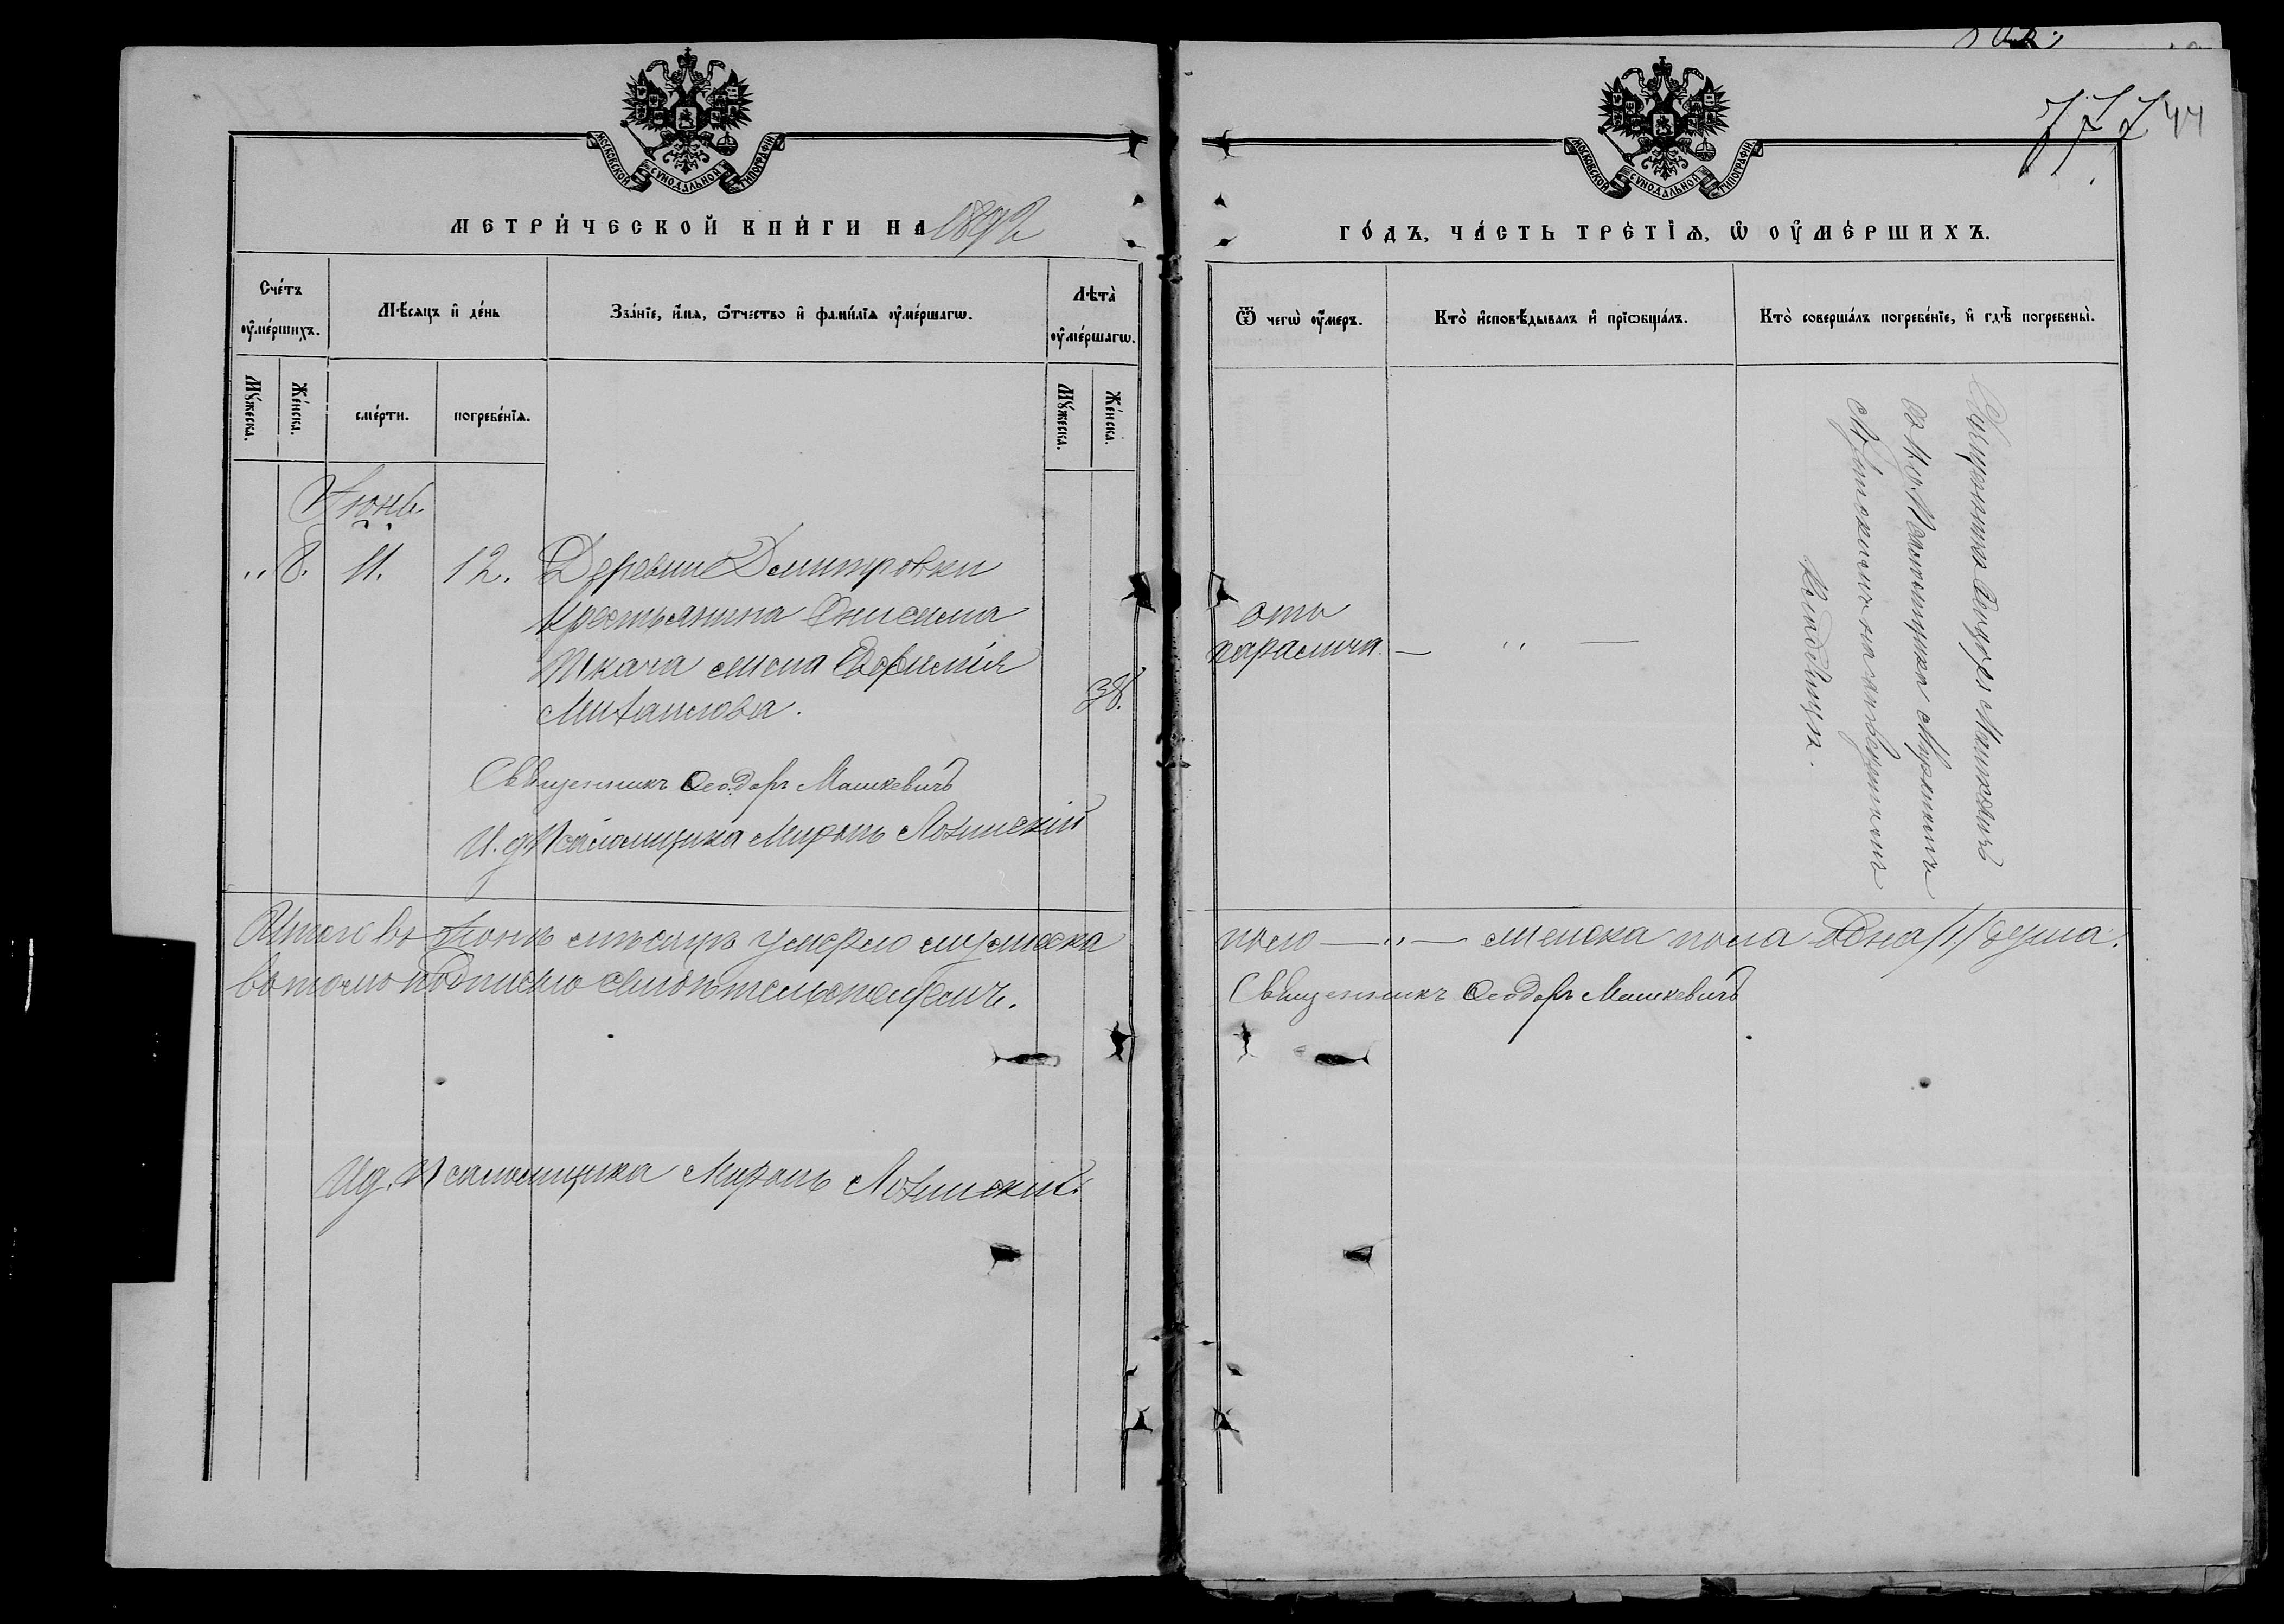 МОСКОВСКОЙ СѴНОДАЛЬНОЙ ТИПОГРАФІИ
МЕТРИ́ЧЕСКОЙ КНИ́ГИ НА 1892
Сче́тъ ᲂу҆ме́ршихъ.
Мѣ́сяцъ и҆ де́нь
Зва́нїе, и҆́мѧ, ѻ҆́тчество и҆ фами́лїѧ ᲂу҆ме́ршагѡ.
Лѣта̀ ᲂу҆ме́ршагѡ.
Мꙋ́жеска.
Же́нска.
сме́рти.
погребе́нїѧ.
Мꙋ́жеска.
Же́нска.
Іюнь
" 8. 11. 12. Деревни Дмитровки
крестьянина Онисима
Ткача жена Евфимія
Михаилова. 38.
Священникъ Ѳеодоръ Машкевичъ
И. д. Псаломщика Миронъ Лозинскій
Итого въ Іюнѣ мѣсяцѣ умерло мужеска
въ томъ подписью свидѣтельствуемъ.
И д. Псаломщика Миронъ Лозинскій
777 44
МОСКОВСКОЙ СѴНОДАЛЬНОЙ ТИПОГРАФІИ
ГО́ДЪ, ЧА́СТЬ ТРЕ́ТЇѦ, Ѡ҆ ОУ҆МЕ́РШИХЪ.
Ѿ чегѡ̀ ᲂу҆́меръ.
Кто̀ и҆сповѣ́дывалъ и҆ прїѡбща́лъ.
Кто̀ соверша́лъ погребе́нїе, и҆ гдѣ̀ погребены̀.
отъ
паралича. — " —
Священникъ Ѳеодоръ Машкевичъ
съ и. д. Псаломщика Мирономъ
Лозинскимъ на приходскомъ
кладбищѣ.
пола — " — женска пола одна /1/ душа.
Священникъ Ѳеодоръ Машкевичъ